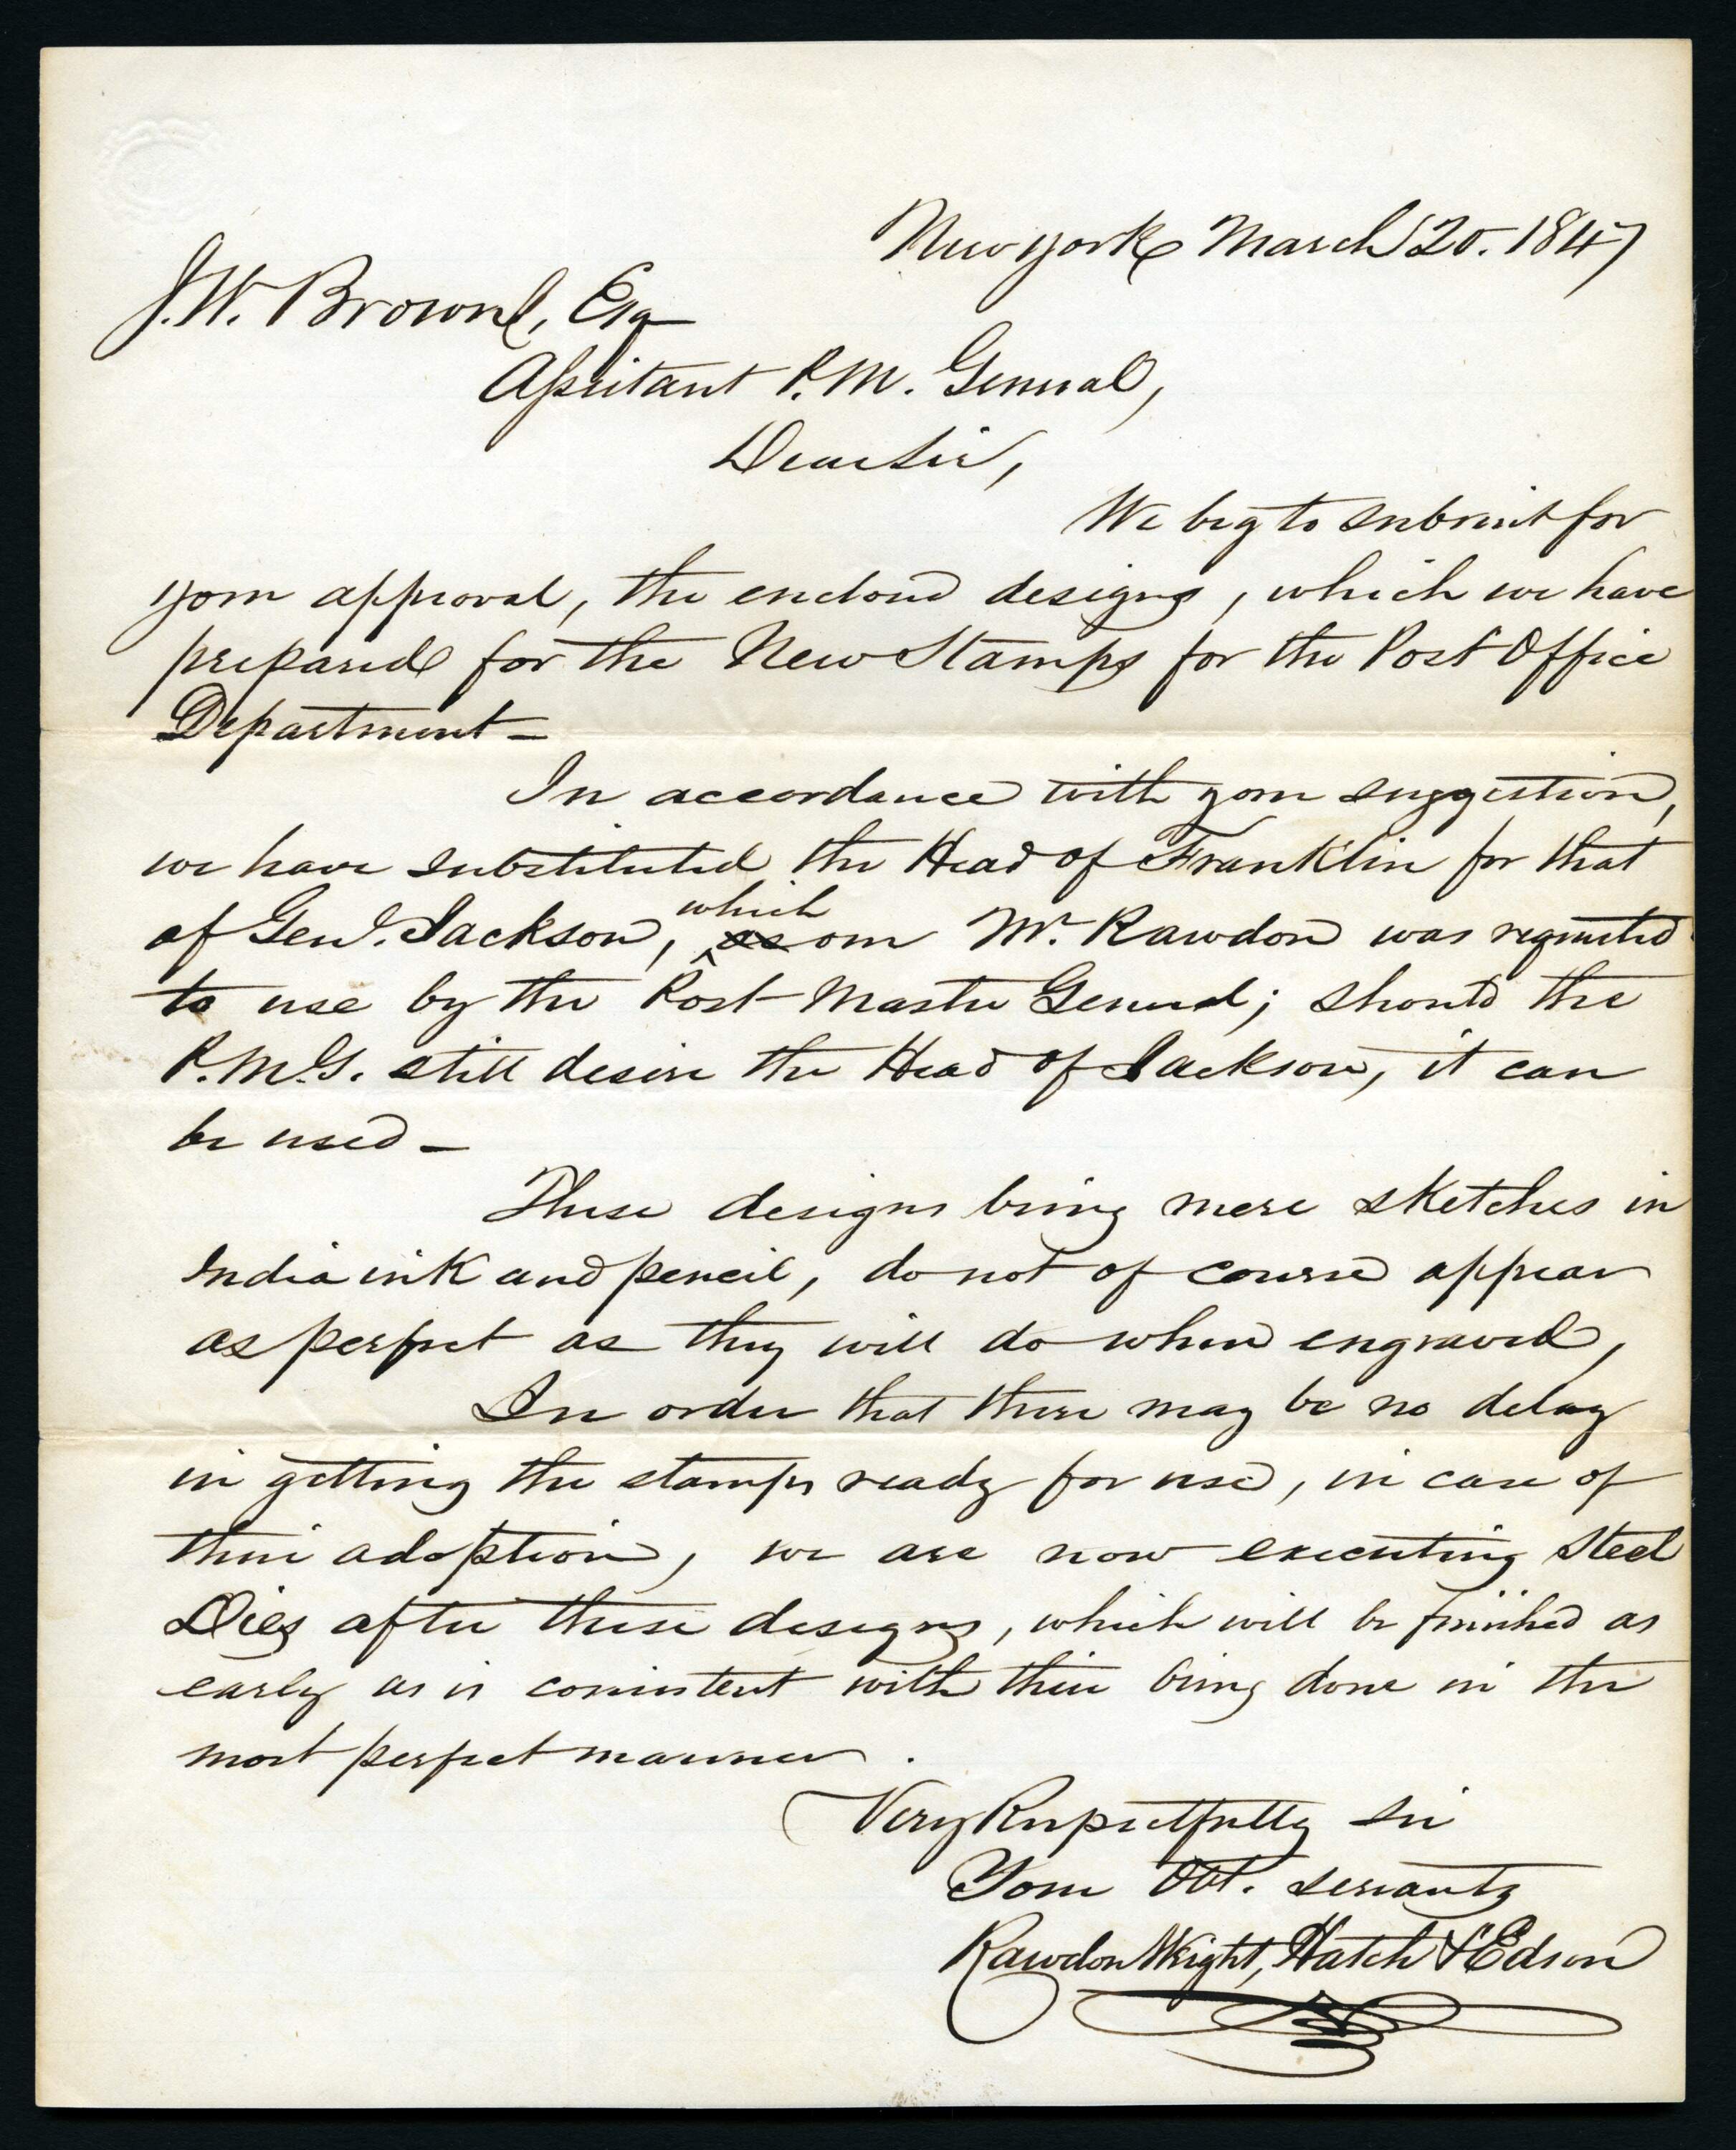 New York March 20. 1847
J. W. Brown, Esq
Assistant P. M. General,
Dear Sir,
We beg to submit for
your approval, the enclosed designs, which we have
prepared for the New Stamps for the Post Office
Department –
In accordance with your suggestion,
we have substituted the Head of Franklin for that
of Genl. Jackson, which our Mr. Rawdon was requested
to use by the Post Master General; should the
P.M.G. still desire the Head of Jackson, it can
be used –
These designs being mere sketches in
India ink and pencil, do not of course appear
as perfect as they will do when engraved,
In order that there may be no delay
in getting the stamps ready for use, in case of
their adoption, we are now executing Steel
Dies after these designs, which will be finished as
early as is consistent with their being done in the
most perfect manner.
Very Respectfully Sir
Your Obt. servants
Rawdon Wright, Hatch & Edson